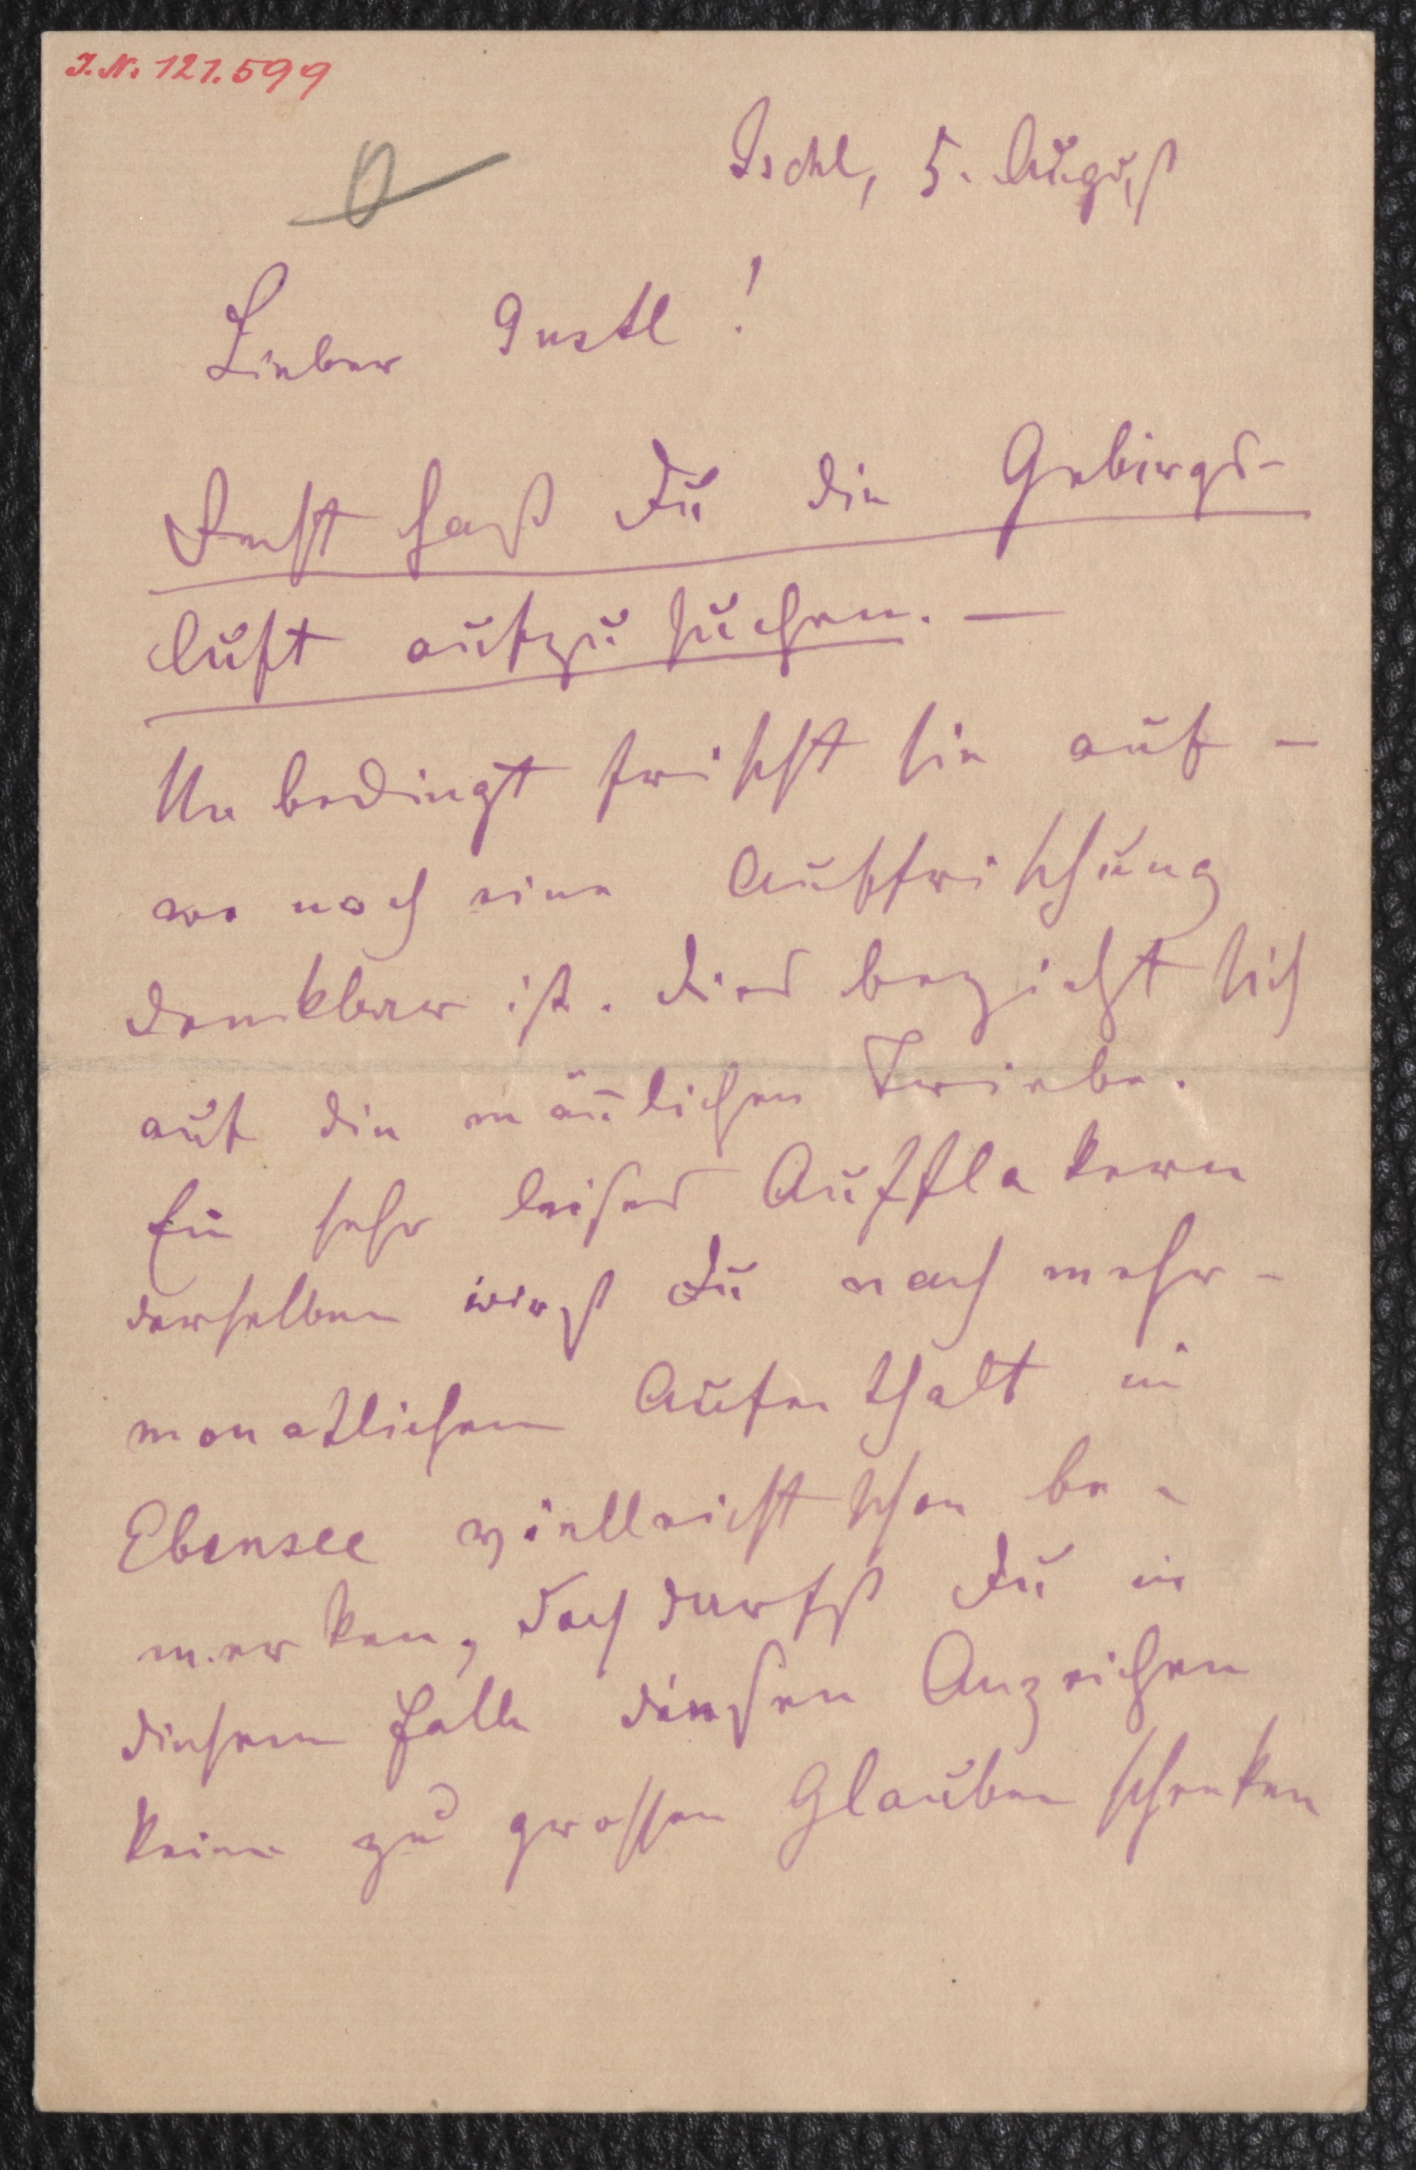 I.N. 121.599
Ischl, 5. August
Lieber Gustl!
Recht hast Du die Gebirgs-
luft aufzusuchen. —
Unbedingt frischt sie auf –
wo noch eine Auffrischung
denkbar ist. Dies bezieht sich
auf die mān̄lichen Triebe.
Ein sehr leises Aufflakern
derselben wirst Du nach mehr-
monatlichem Aufenthalt in
Ebensee vielleicht schon be-
merken, doch darfst Du in
diesem Falle diesen Anzeichen
keine zu grossen Glauben schenken